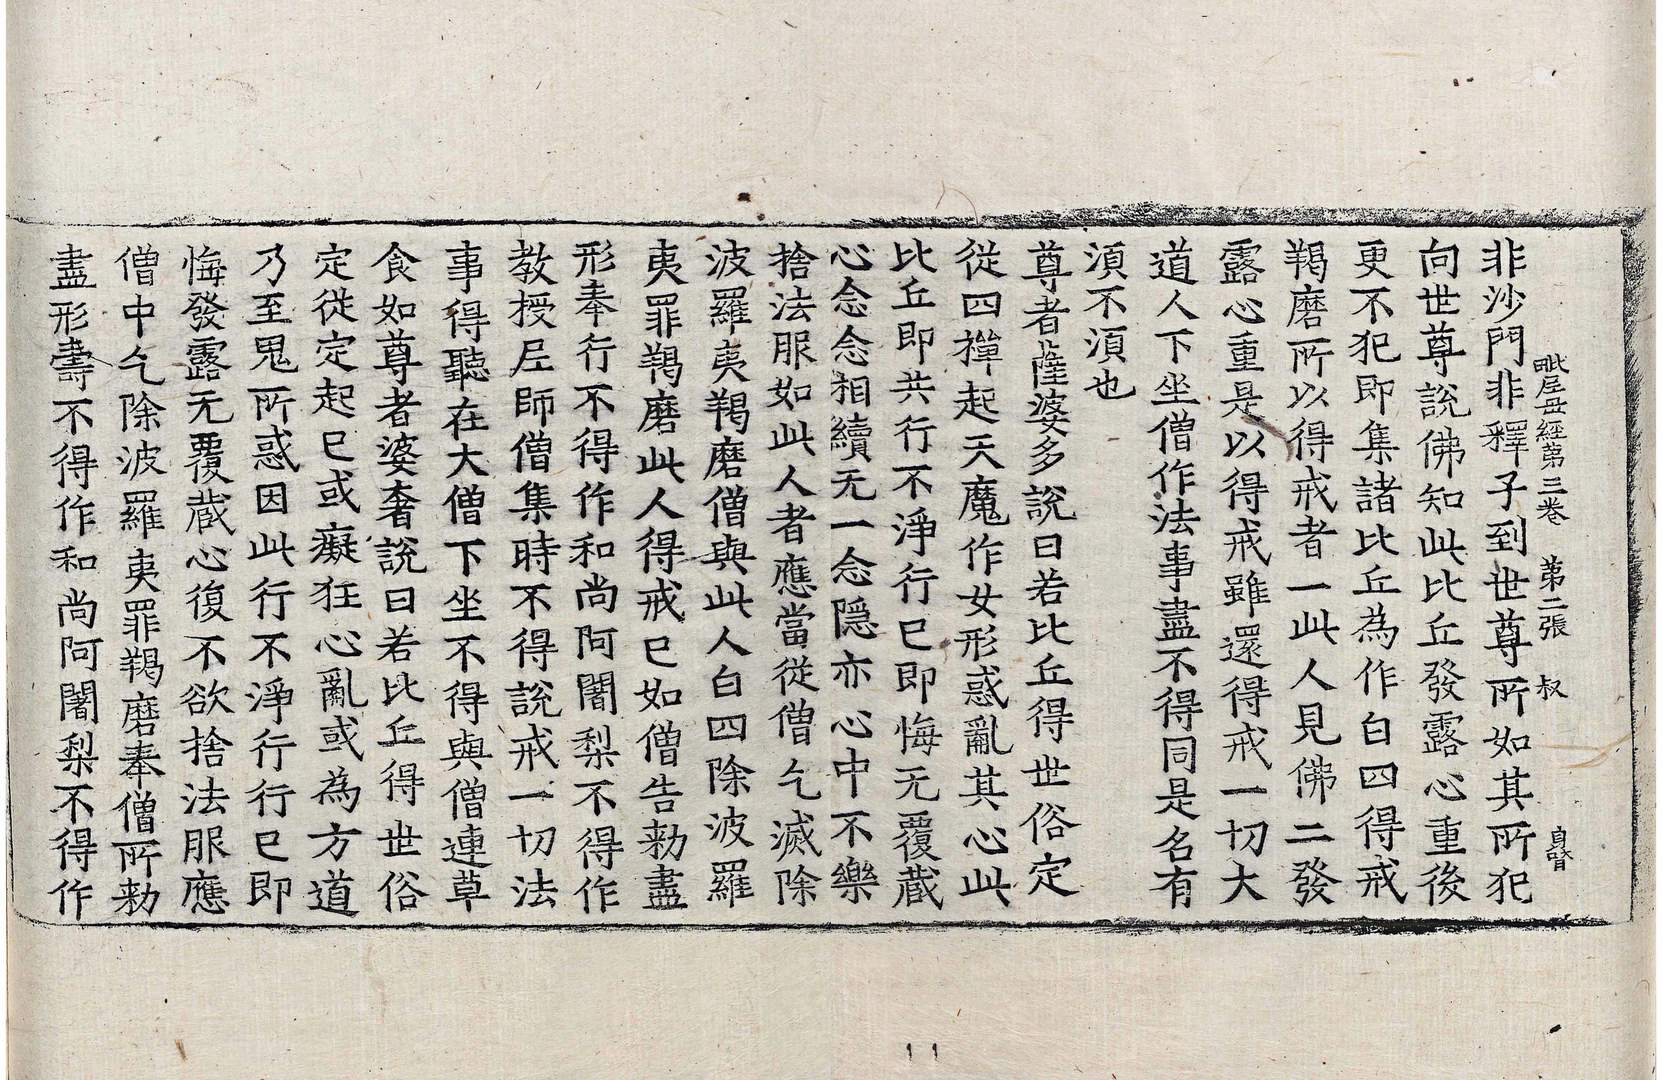 毗尼母經第三卷 第二張 叔
非沙門非釋子到世尊所如其所犯
向世尊說佛知此比丘發露心重後
更不犯即集諸比丘為作白四得戒
羯磨所以得戒者一此人見佛二發
露心重是以得戒雖還得戒一切大
道人下坐僧作法事盡不得同是名有
湏不湏也
尊者薩婆多說曰若比丘得世俗定
從四禪起天魔作女形惑亂其心此
比丘即共行不淨行已即悔无覆藏
心念念相續无一念隱亦心中不樂
捨法服如此人者應當從僧乞滅除
波羅夷羯磨僧與此人白四除波羅
夷罪羯磨此人得戒已如僧告勑盡
形奉行不得作和尚阿闍梨不得作
教授尼師僧集時不得說戒一切法
事得聽在大僧下坐不得與僧連草
食如尊者婆奢說曰若比丘得世俗
定從定起已或癡狂心亂或為方道
乃至鬼所惑因此行不淨行行已即
悔發露无覆藏心復不欲捨法服應
僧中乞除波羅夷罪羯磨奉僧所勑
盡形壽不得作和尚阿闍梨不得作